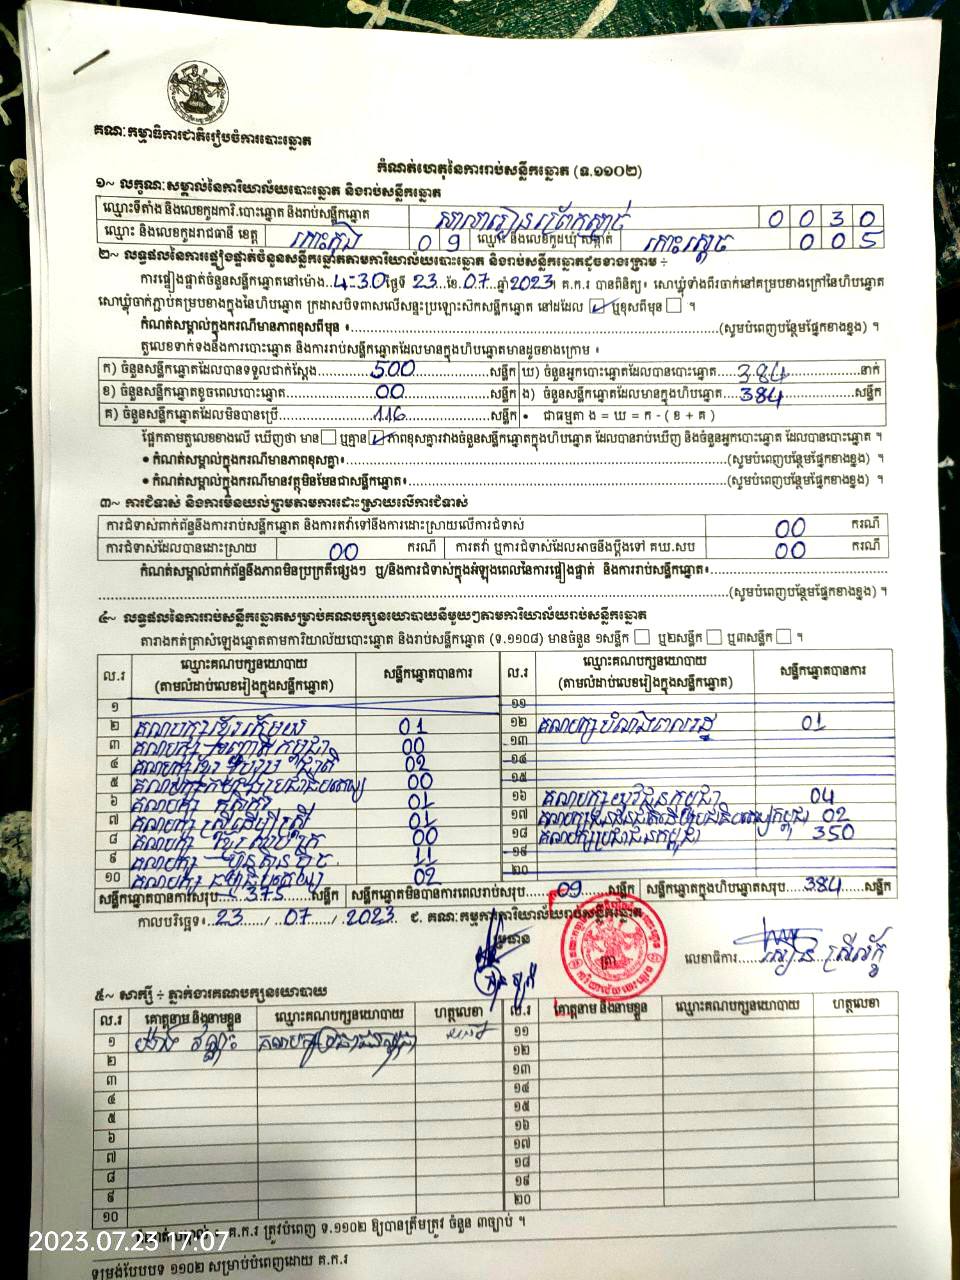 គណៈកម្មាធិការជាតិរៀបចំការបោះឆ្នោត
កំណត់ហេតុនៃការរាប់សន្លឹកឆ្នោត (ទ.១១០២)
១~ លក្ខណៈសម្គាល់នៃការិយាល័យបោះឆ្នោត និងរាប់សន្លឹកឆ្នោត
ឈ្មោះទីតាំង និងលេខកូដការិ.បោះឆ្នោត និងរាប់សន្លឹកឆ្នោត សាលារៀនព្រែកស្មាច់ 0 0 3 0
ឈ្មោះ និងលេខកូដរាជធានី ខេត្ត កោះកុង 0 9 ឈ្មោះ និងលេខកូដឃុំ សង្កាត់ កោះស្ដេច 0 0 5
២~ លទ្ធផលនៃការផ្ទៀងផ្ទាត់ចំនួនសន្លឹកឆ្នោតតាមការិយាល័យបោះឆ្នោត និងរាប់សន្លឹកឆ្នោតដូចខាងក្រោម ÷
ការផ្ទៀងផ្ទាត់ចំនួនសន្លឹកឆ្នោតនៅម៉ោង 4-30 ថ្ងៃទី 23 ខែ 07 ឆ្នាំ 2023។ គ.ក.រ បានពិនិត្យ៖ សោឃ្លុំទាំងពីរចាក់នៅគម្របខាងក្រៅនៃហិបឆ្នោត
សោឃ្លុំចាក់ភ្ជាប់គម្របខាងក្នុងនៃហិបឆ្នោត ក្រដាសបិទពាសលើសន្ទះប្រឡោះសិកសន្លឹកឆ្នោត នៅដដែល ☑ ឬខុសពីមុន ☐ ។
កំណត់សម្គាល់ក្នុងករណីមានភាពខុសពីមុន ៖ (សូមបំពេញបន្ថែមផ្នែកខាងខ្នង) ។
តួលេខទាក់ទងនឹងការបោះឆ្នោត និងការរាប់សន្លឹកឆ្នោតដែលមានក្នុងហិបឆ្នោតមានដូចខាងក្រោម ៖
ក) ចំនួនសន្លឹកឆ្នោតដែលបានទទួលជាក់ស្ដែង 500 សន្លឹក ឃ) ចំនួនអ្នកបោះឆ្នោតដែលបានបោះឆ្នោត 384 នាក់
ខ) ចំនួនសន្លឹកឆ្នោតខូចពេលបោះឆ្នោត 00 សន្លឹក ង) ចំនួនសន្លឹកឆ្នោតដែលមានក្នុងហិបឆ្នោត 384 សន្លឹក
គ) ចំនួនសន្លឹកឆ្នោតដែលមិនបានប្រើ 116 សន្លឹក • ជាធម្មតា ង = ឃ = ក - ( ខ + គ )
ផ្អែកតាមតួលេខខាងលើ ឃើញថា មាន ☐ ឬគ្មាន ☑ ភាពខុសគ្នារវាងចំនួនសន្លឹកឆ្នោតក្នុងហិបឆ្នោត ដែលបានរាប់ឃើញ និងចំនួនអ្នកបោះឆ្នោត ដែលបានបោះឆ្នោត ។
• កំណត់សម្គាល់ក្នុងករណីមានភាពខុសគ្នា៖ (សូមបំពេញបន្ថែមផ្នែកខាងខ្នង) ។
• កំណត់សម្គាល់ក្នុងករណីមានវត្ថុមិនមែនជាសន្លឹកឆ្នោត៖ (សូមបំពេញបន្ថែមផ្នែកខាងខ្នង) ។
៣~ ការជំទាស់ និងការមិនយល់ព្រមតាមការដោះស្រាយលើការជំទាស់
ការជំទាស់ពាក់ព័ន្ធនឹងការរាប់សន្លឹកឆ្នោត និងការតវ៉ាទៅនឹងការដោះស្រាយលើការជំទាស់ 00 ករណី
ការជំទាស់ដែលបានដោះស្រាយ 00 ករណី ការតវ៉ា ឬការជំទាស់ដែលអាចនឹងប្ដឹងទៅ គឃ.សប 00 ករណី
កំណត់សម្គាល់ពាក់ព័ន្ធនឹងភាពមិនប្រក្រតីផ្សេងៗ ឬ/និងការជំទាស់ក្នុងអំឡុងពេលនៃការផ្ទៀងផ្ទាត់ និងការរាប់សន្លឹកឆ្នោត៖
(សូមបំពេញបន្ថែមផ្នែកខាងខ្នង) ។
៤~ លទ្ធផលនៃការរាប់សន្លឹកឆ្នោតសម្រាប់គណបក្សនយោបាយនីមួយៗតាមការិយាល័យរាប់សន្លឹកឆ្នោត
តារាងកត់ត្រាសំឡេងឆ្នោតតាមការិយាល័យបោះឆ្នោត និងរាប់សន្លឹកឆ្នោត (ទ.១១០៨) មានចំនួន ១សន្លឹក ☐ ឬ២សន្លឹក ☐ ឬ៣សន្លឹក ☐ ។
ល.រ ឈ្មោះគណបក្សនយោបាយ (តាមលំដាប់លេខរៀងក្នុងសន្លឹកឆ្នោត) សន្លឹកឆ្នោតបានការ ល.រ ឈ្មោះគណបក្សនយោបាយ (តាមលំដាប់លេខរៀងក្នុងសន្លឹកឆ្នោត) សន្លឹកឆ្នោតបានការ
១ ១១
២ គណបក្ស 01 ១២ គណបក្ស 01
៣ គណបក្ស កម្ពុជា 00 ១៣
៤ គណបក្ស ជាតិ 02 ១៤
៥ គណបក្ស ប្រជាធិបតេយ្យ 00 ១៥
៦ គណបក្ស កសិករ 01 ១៦ គណបក្សយុវជនកម្ពុជា 04
៧ គណបក្ស ស្ត្រីដើម្បីស្ត្រី 01 ១៧ គណបក្ស កម្ពុជា 02
៨ គណបក្ស 00 ១៨ គណបក្សប្រជាជនកម្ពុជា 350
៩ គណបក្ស ហ្វ៊ុនស៊ិនប៉ិច 11 ១៩
១០ គណបក្ស 02 ២០
សន្លឹកឆ្នោតបានការសរុប 375 សន្លឹក សន្លឹកឆ្នោតមិនបានការពេលរាប់សរុប 09 សន្លឹក សន្លឹកឆ្នោតក្នុងហិបឆ្នោតសរុប 384 សន្លឹក
កាលបរិច្ឆេទ៖ 23 / 07 / 2023 ជ. គណៈកម្មការការិយាល័យរាប់សន្លឹកឆ្នោត
ប្រធាន ត្រា លេខាធិការ
៥~ សាក្សី ÷ ភ្នាក់ងារគណបក្សនយោបាយ
ល.រ គោត្តនាម និងនាមខ្លួន ឈ្មោះគណបក្សនយោបាយ ហត្ថលេខា ល.រ គោត្តនាម និងនាមខ្លួន ឈ្មោះគណបក្សនយោបាយ ហត្ថលេខា
១ គណបក្សប្រជាជនកម្ពុជា ១១
២ ១២
៣ ១៣
៤ ១៤
៥ ១៥
៦ ១៦
៧ ១៧
៨ ១៨
៩ ១៩
១០ ២០
គ.ក.រ ត្រូវបំពេញ ទ.១១០២ ឱ្យបានត្រឹមត្រូវ ចំនួន ៣ច្បាប់ ។
2023.07.23 17:07
ទម្រង់បែបបទ ១១០២ សម្រាប់បំពេញដោយ គ.ក.រ